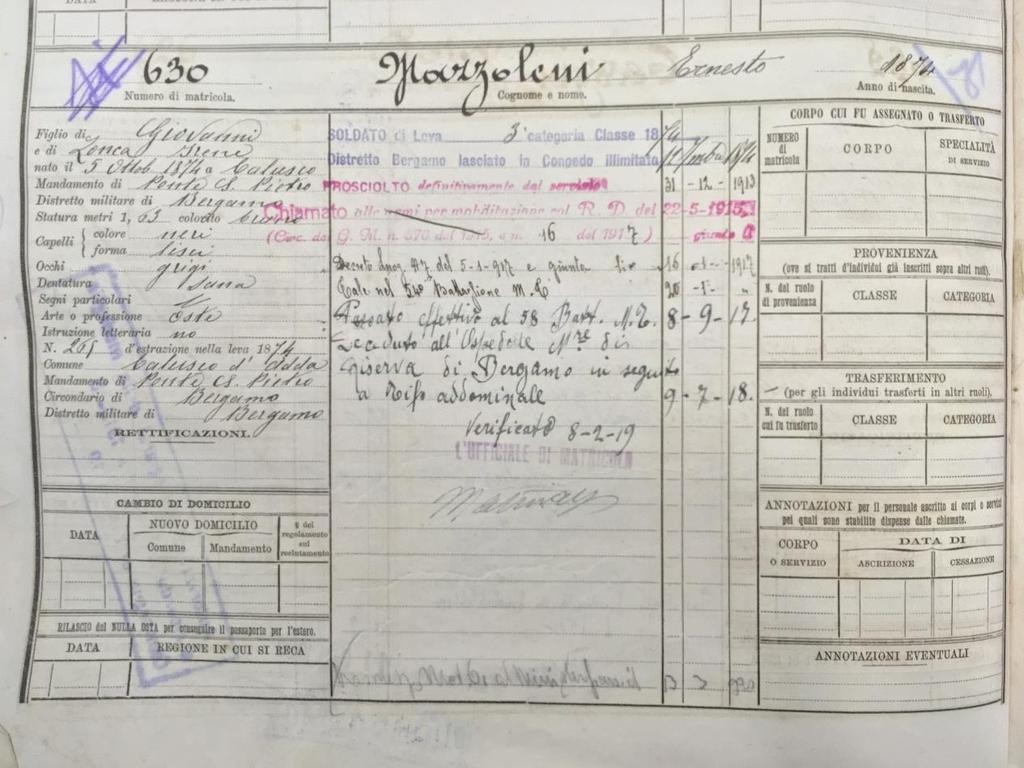 DATA
630
Numero di matricola.
Mazzoleni Ernesto
Cognome e nome.
1874
Anno di nascita.
Figlio di Giovanni
e di Irene
nato il 5 Ottob. 1874 a Calusco
Mandamento di Ponte S. Pietro
Distretto militare di Bergamo
Statura metri 1, 63 colorito bruno
Capelli { colore neri
forma lisci
Occhi grigi
Dentatura sana
Segni particolari
Arte o professione Oste
Istruzione letteraria no
N. 261 d'estrazione nella leva 1874
Comune Calusco d'Adda
Mandamento di Ponte S. Pietro
Circondario di Bergamo
Distretto militare di Bergamo
RETTIFICAZIONI.
CAMBIO DI DOMICILIO
DATA
NUOVO DOMICILIO
Comune
Mandamento
§ del regolamento sul reclutamento
RILASCIO del NULLA OSTA per conseguire il passaporto per l'estero.
DATA
REGIONE IN CUI SI RECA
SOLDATO di Leva 3ª categoria Classe 1874
Distretto Bergamo lasciato in Congedo Illimitato
PROSCIOLTO definitivamente dal servizio 31 - 12 - 1913
Chiamato alle armi per mobilitazione col R. D. del 22-5-1915
(Circ. del G. M. n. 370 del 1915, e n. 16 del 1917) giunto
Decreto Luog. 917 del 5-1-917 e giunto 16 - 1 - 1917
Tale nel 54º Battaglione M. T. 20 - 1 - "
Passato effettivo al 58 Batt. M. T. 8 - 9 - 17.
Deceduto all'Ospedale Mre di
riserva di Bergamo in seguito
a Tifo addominale 9 - 7 - 18.
Verificato 8-2-19
L'UFFICIALE DI MATRICOLA
13 920
CORPO CUI FU ASSEGNATO O TRASFERTO
NUMERO di matricola
CORPO
SPECIALITÀ DI SERVIZIO
PROVENIENZA
(ove si tratti d'individui già inscritti sopra altri ruoli).
N. del ruolo di provenienza
CLASSE
CATEGORIA
TRASFERIMENTO
(per gli individui trasferti in altri ruoli).
N. del ruolo cui fu trasferto
CLASSE
CATEGORIA
ANNOTAZIONI per il personale ascritto ai corpi o servizi
pei quali sono stabilite dispense dalle chiamate.
CORPO O SERVIZIO
DATA DI
ASCRIZIONE
CESSAZIONE
ANNOTAZIONI EVENTUALI